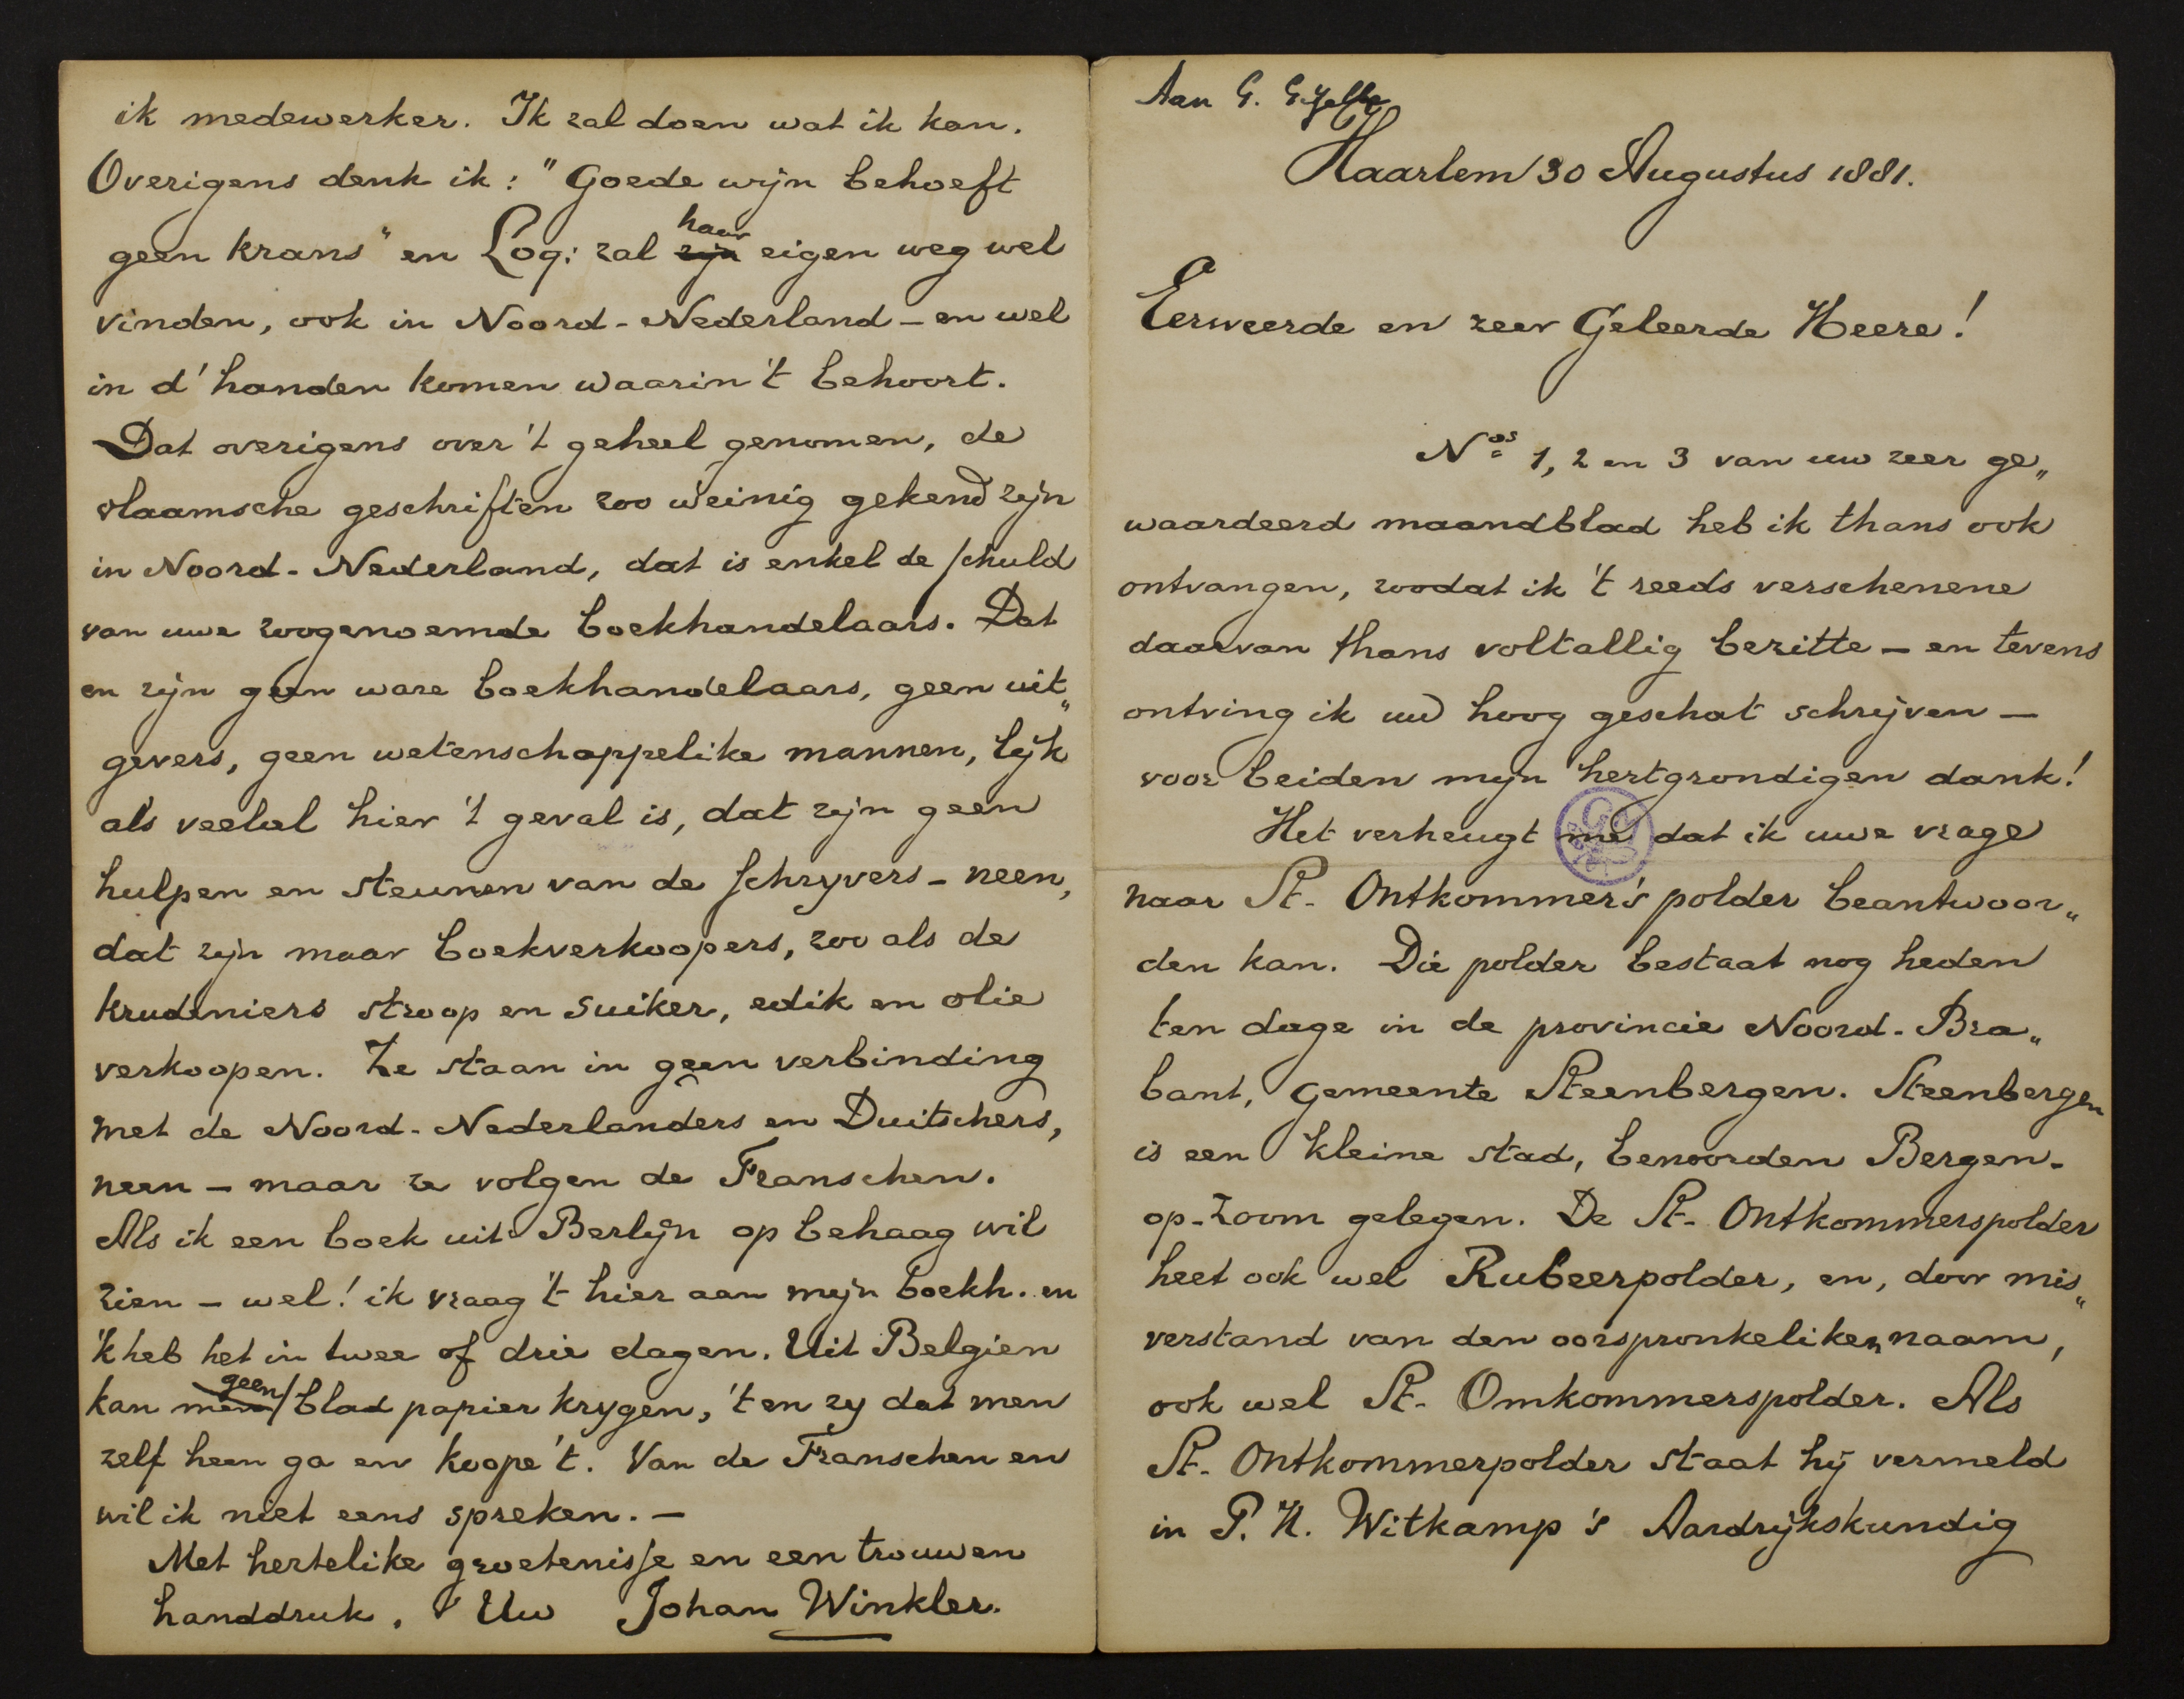 Aan G. Gezelle
Haarlem 30 Augustus 1881.
Eerweerde en zeer Geleerde Heere!
Nos 1, 2 en 3 van uw zeer ge„
waardeerd maandblad heb ik thans ook
ontvangen, zoodat ik 't reeds verschenene
daarvan thans voltallig bezitte – en tevens
ontving ik uw hoog geschat schrijven –
voor beiden mijn hertgrondigen dank!
Het verheugt me dat ik uwe vrage
naar St. Ontkommer's polder beantwoor„
den kan. Die polder bestaat nog heden
ten dage in de provincie Noord-Bra„
bant, gemeente Steenbergen. Steenbergen
is een kleine stad, benoorden Bergen-
op-Zoom gelegen. De St. Ontkommerspolder
heet ook wel Rubeerpolder, en, door mis„
verstand van den oorspronkeliken naam,
ook wel St. Omkommerspolder. Als
St. Ontkommerpolder staat hij vermeld
in P. H. Witkamp's Aardrijkskundig
ik medewerker. Ik zal doen wat ik kan.
Overigens denk ik: "Goede wijn behoeft
geen krans" en Loq: zal zijn haar eigen weg wel
vinden, ook in Noord-Nederland – en wel
in d' handen komen waarin 't behoort.
Dat overigens over 't geheel genomen, de
vlaamsche geschriften zoo weinig gekend zijn
in Noord-Nederland, dat is enkel de schuld
van uwe zoogenoemde boekhandelaars. Dat
en zijn geen ware boekhandelaars, geen uit„
gevers, geen wetenschappelike mannen, lijk
als veelal hier 't geval is, dat zijn geen
hulpen en steunen van de schryvers – neen,
dat zijn maar boekverkoopers, zoo als de
krudeniers stroop en suiker, edik en olie
verkoopen. Ze staan in geen verbinding
met de Noord-Nederlanders en Duitschers,
neen – maar ze volgen de Franschen.
Als ik een boek uit Berlijn op behaag wil
zien – wel! ik vraag 't hier aan mijn boekh. en
'k heb het in twee of drie dagen. Uit Belgien
kan men geen blad papier krygen, 't en zy dat men
zelf heen ga en koope 't. Van de Franschen en
wil ik niet eens spreken. –
Met hertelike groetenisse en een trouwen
handdruk, Uw Johan Winkler.